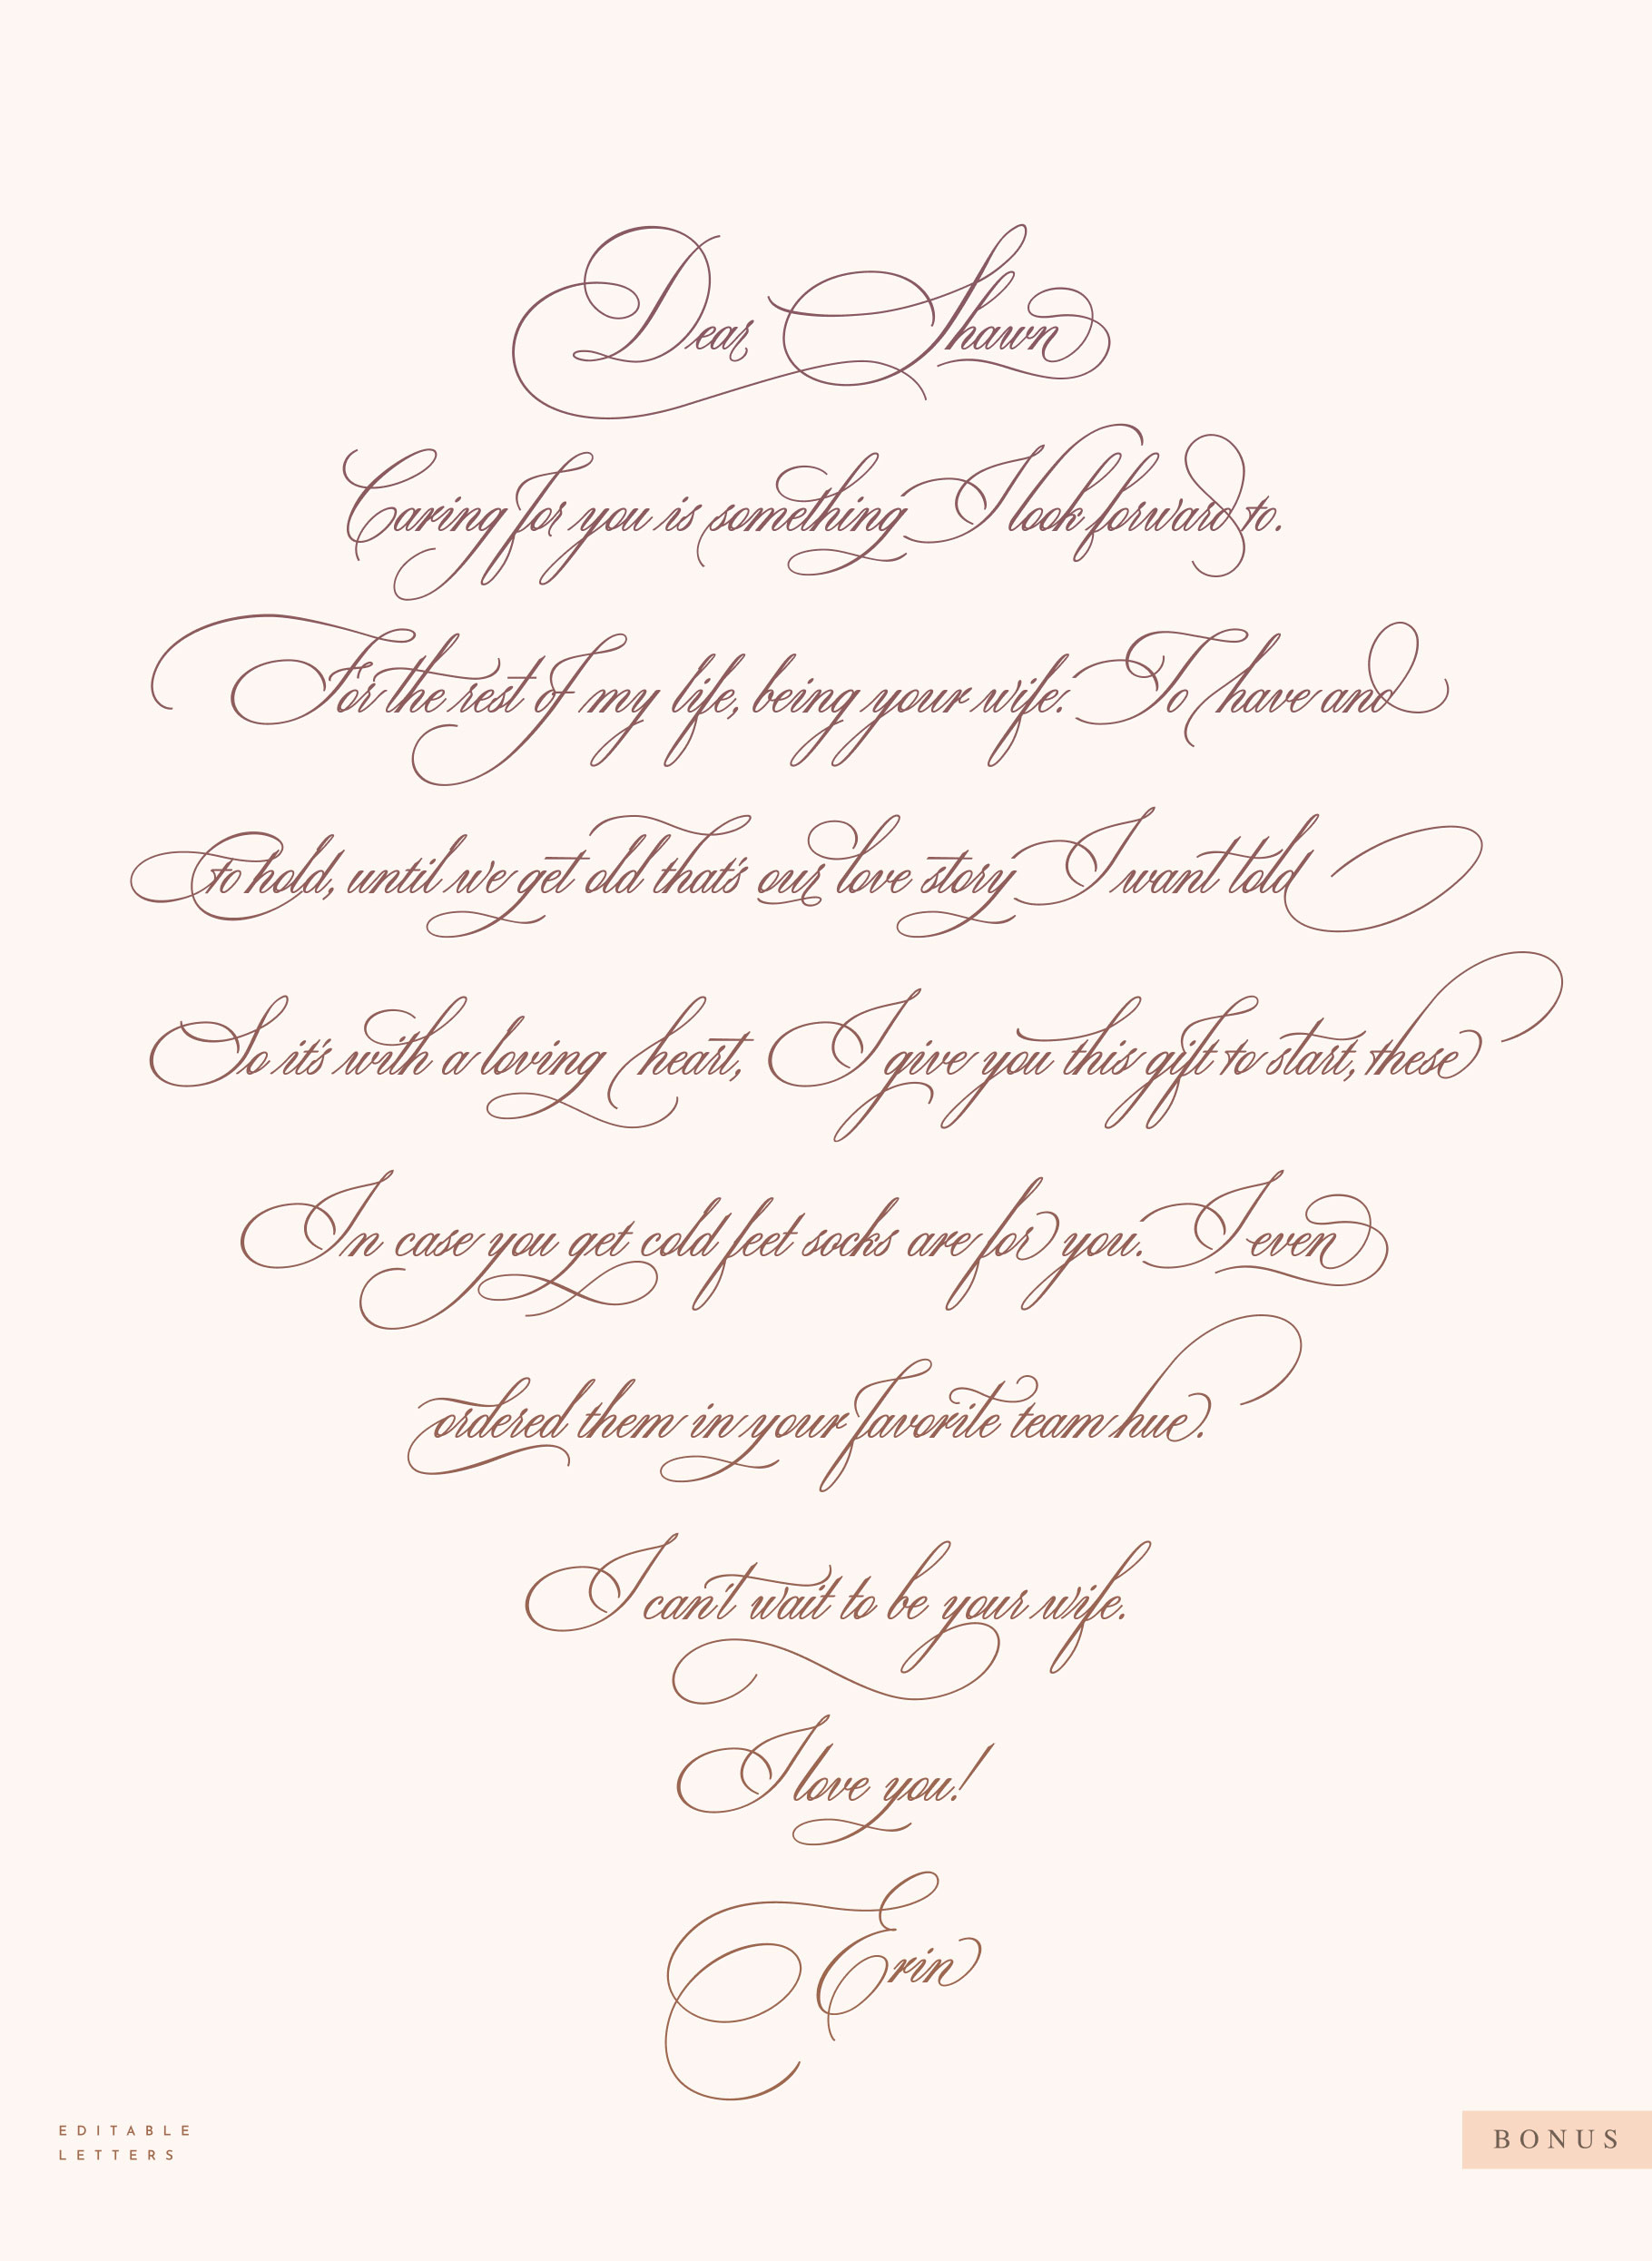 Dear Shawn
Caring for you is something I look forward to.
For the rest of my life, being your wife. To have and
to hold, until we get old that's our love story I want told
So it's with a loving heart, I give you this gift to start, these
In case you get cold feet socks are for you. I even
ordered them in your favorite team hue.
I can't wait to be your wife.
I love you!
Erin
EDITABLE
LETTERS
BONUS